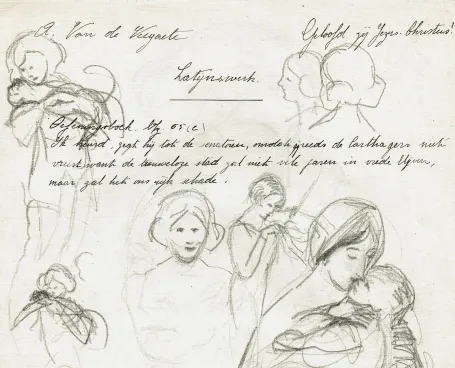 A. Van de Veegaete
Geloofd zij Jezus Christus!
Latijnswerk.
Oefeningsboek. blz 05 (c)
Ik huurd, zegt hij tot de senatoren, omdat greeds de Carthagers niet
vreest want de trouweloze stad zal niet vele jaren in vrede blijven,
maar zal het ons rijk schade.